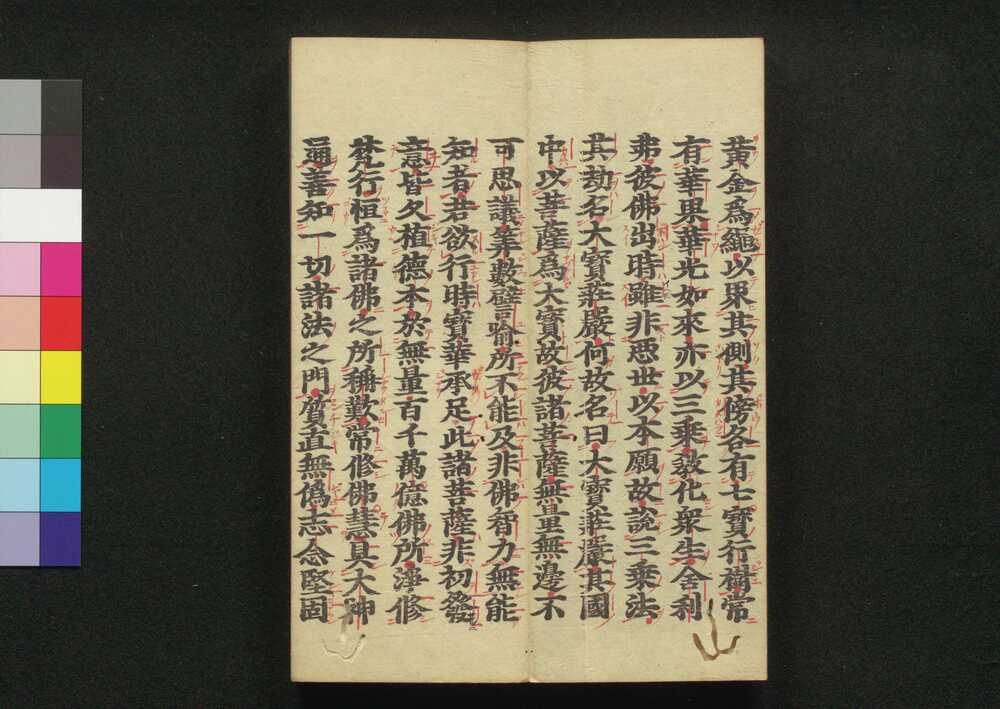 黄金為繩以界其側其傍各有七寶行樹常
有華果華光如來亦以三乘敎化衆生舍利
弗彼佛出時雖非惡世以本願故說三乘法
其劫名大寶莊嚴何故名曰大寶莊嚴其國
中以菩薩為大寶故彼諸菩薩無量無邊不
可思議筭數譬喩所不能及非佛智力無能
知者若欲行時寶華承足此諸菩薩非初發
意皆久植德本於無量百千萬億佛所淨修
梵行恒為諸佛之所稱歎常修佛慧具大神
通善知一切諸法之門質直無僞志念堅固